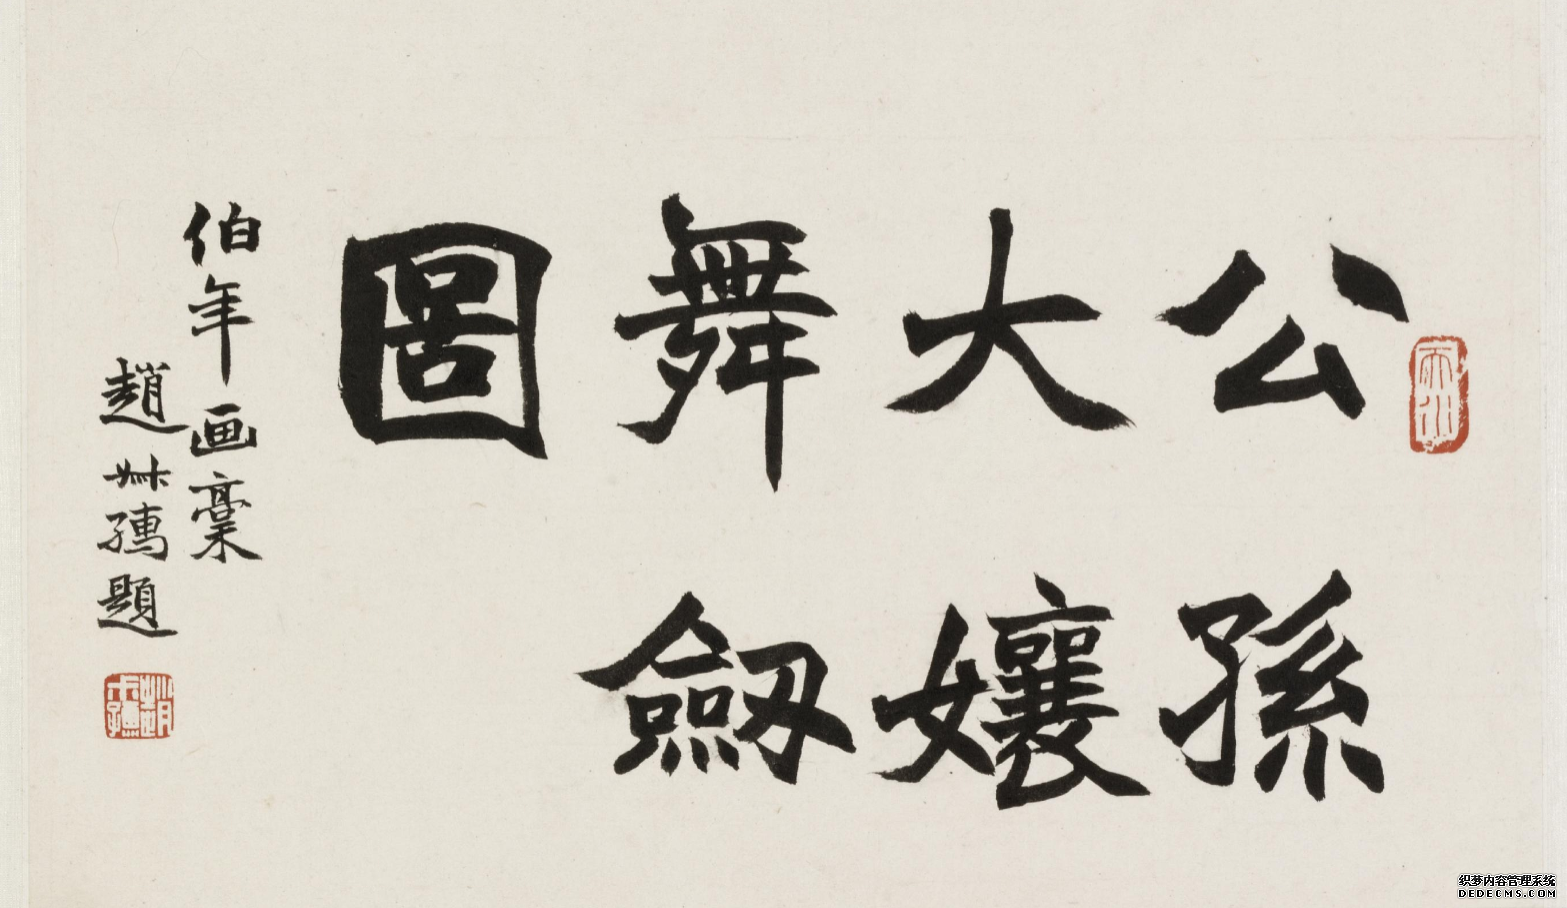 公孫
大孃
舞劒
圖
伯年画稾
趙叔孺題
織夢內容管理系統
DEDECMS.COM